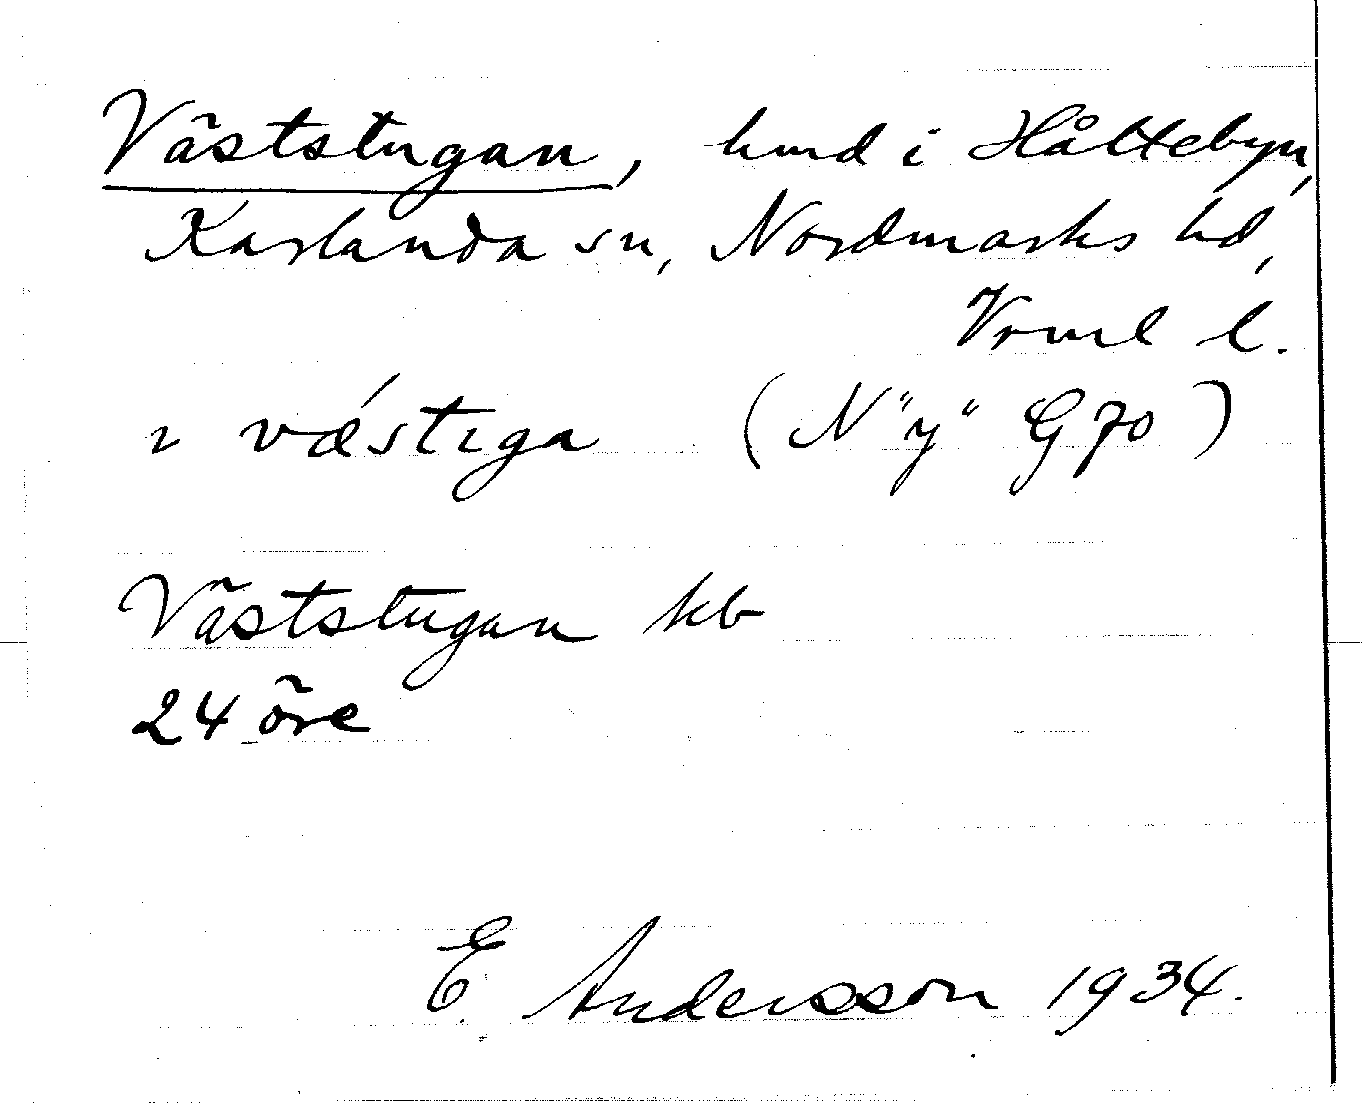 Väststugan, hmd i Håltebyn,
Karlanda sn, Nordmarks hd,
Vrml l.
ɩ vǽstɩga (N "y" G 70)
Väststugan kb
24 öre
E. Andersson 1934.